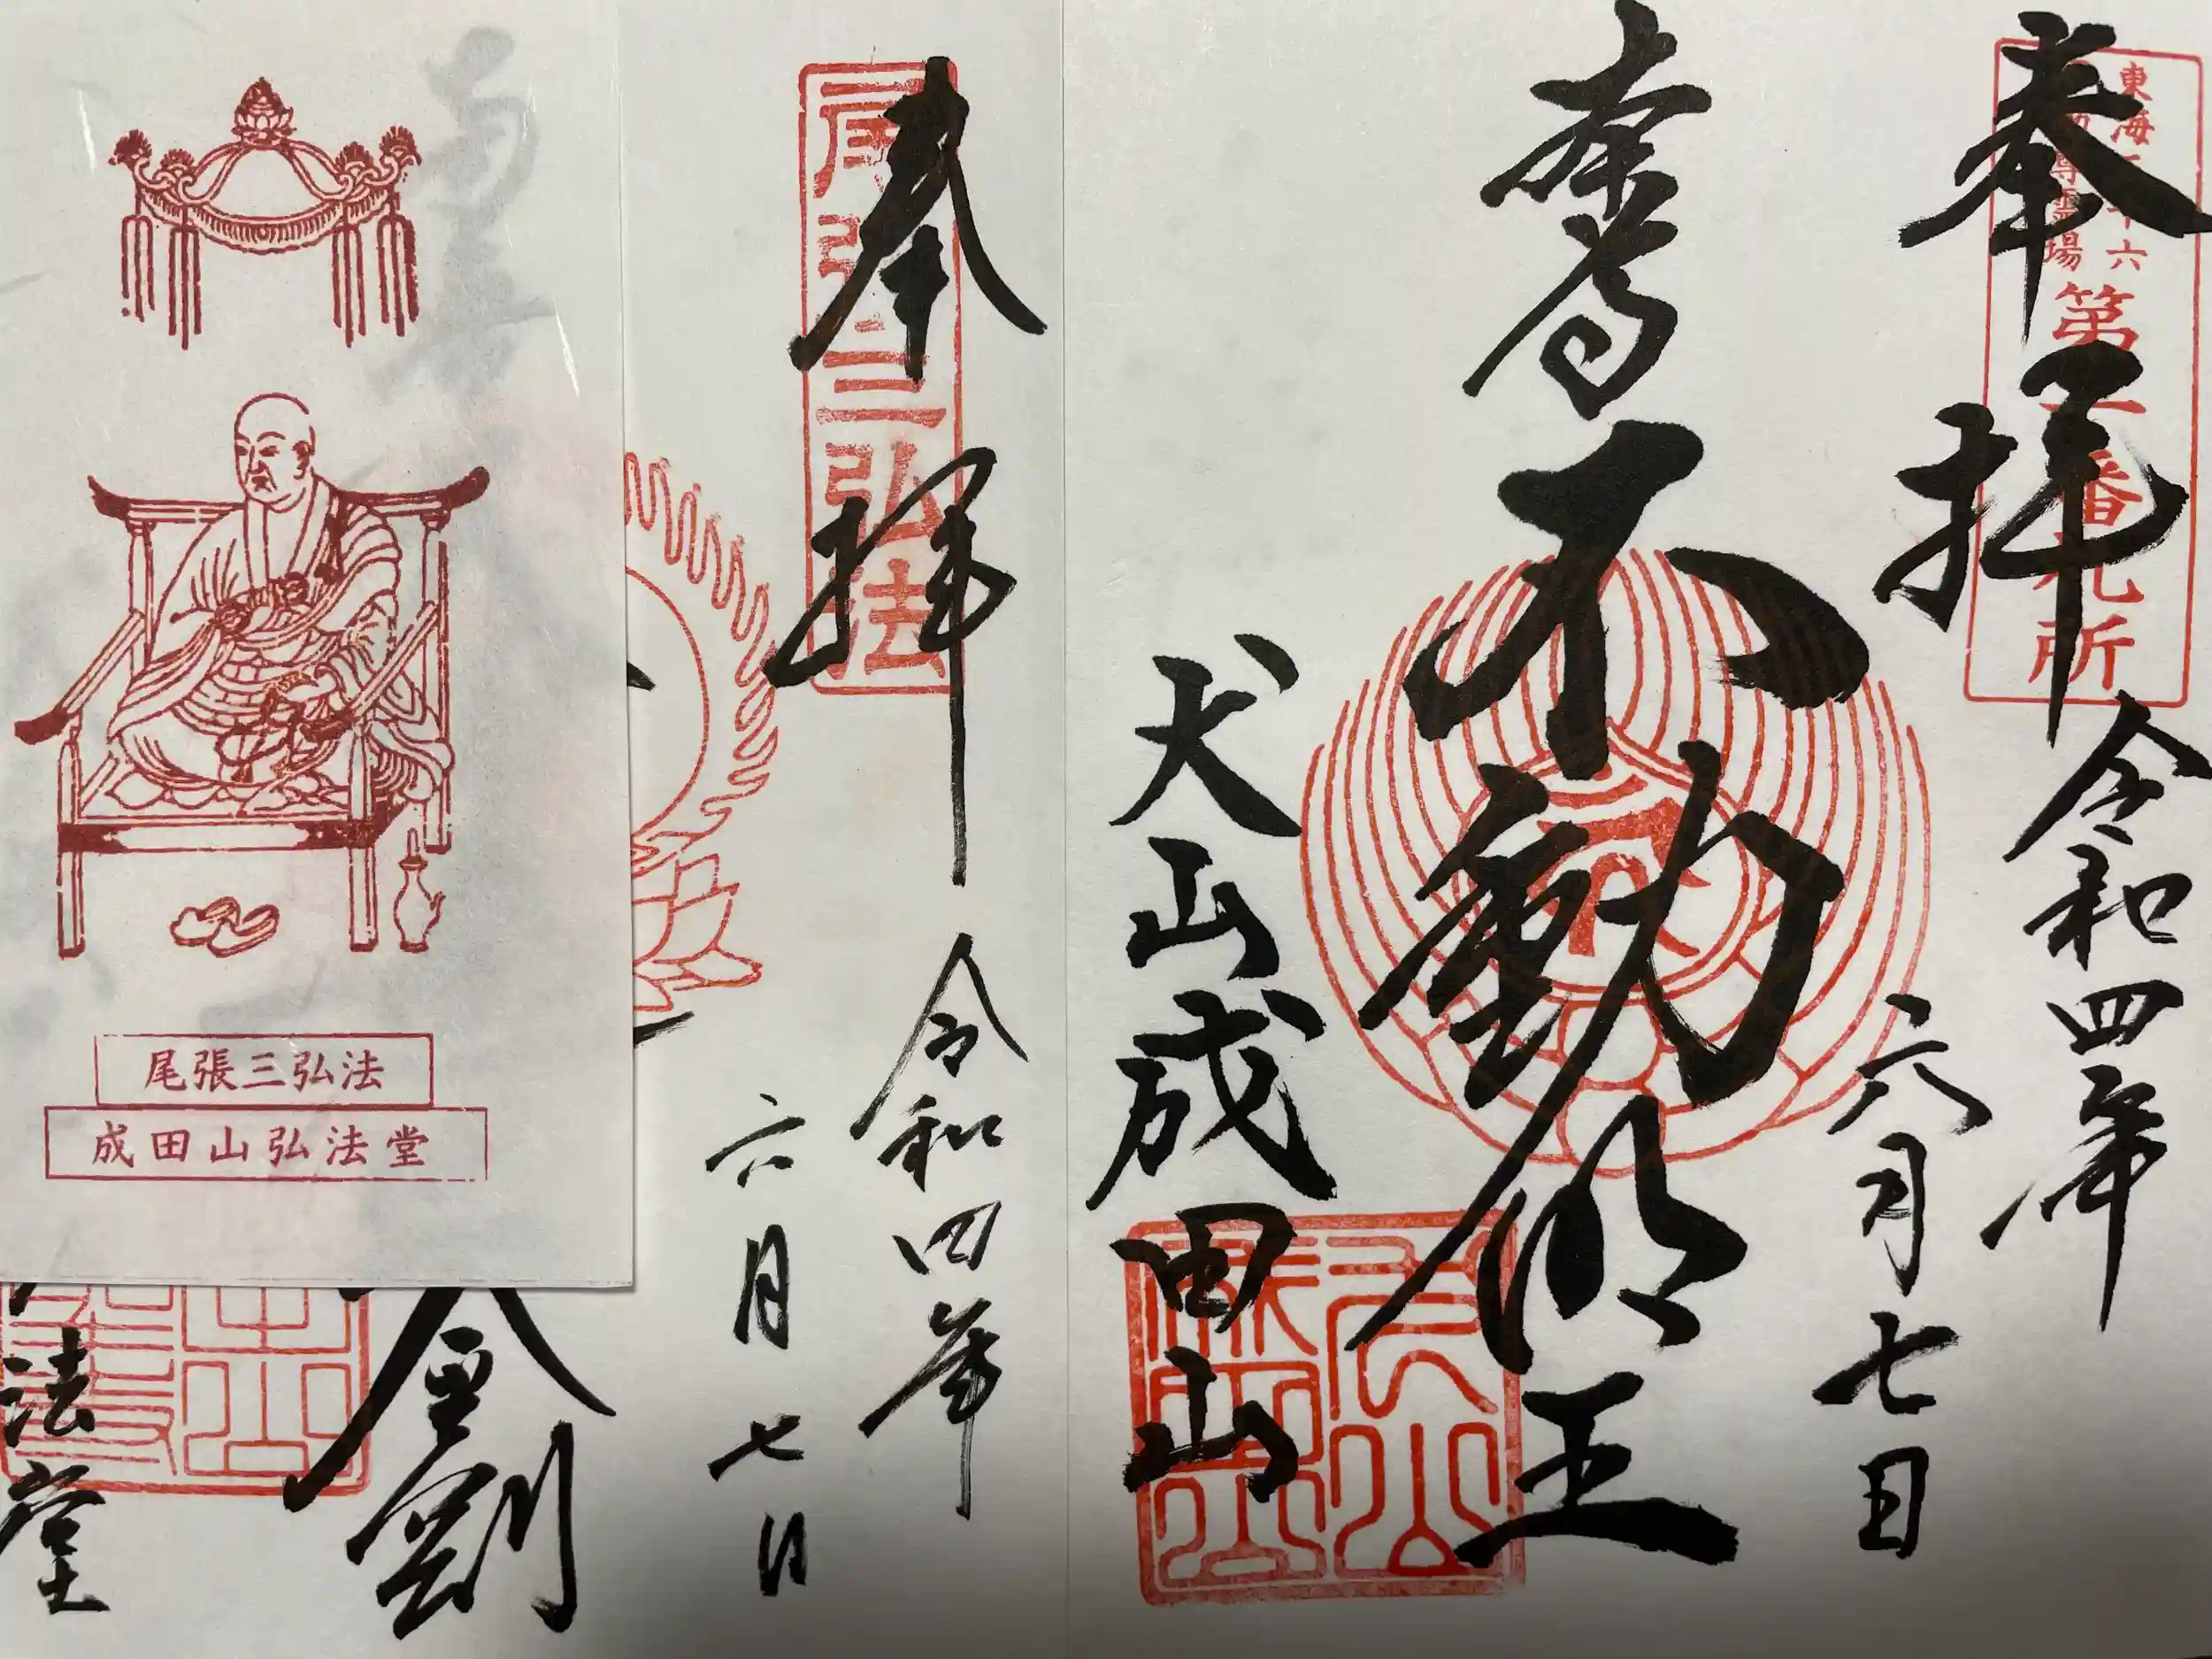 奉拝
東海三十六
不動尊霊場
第一番札所
令和四年
六月七日
大聖不動明王
犬山成田山
奉拝
尾張三弘法
令和四年
六月七日
金剛
法堂
尾張三弘法
成田山弘法堂